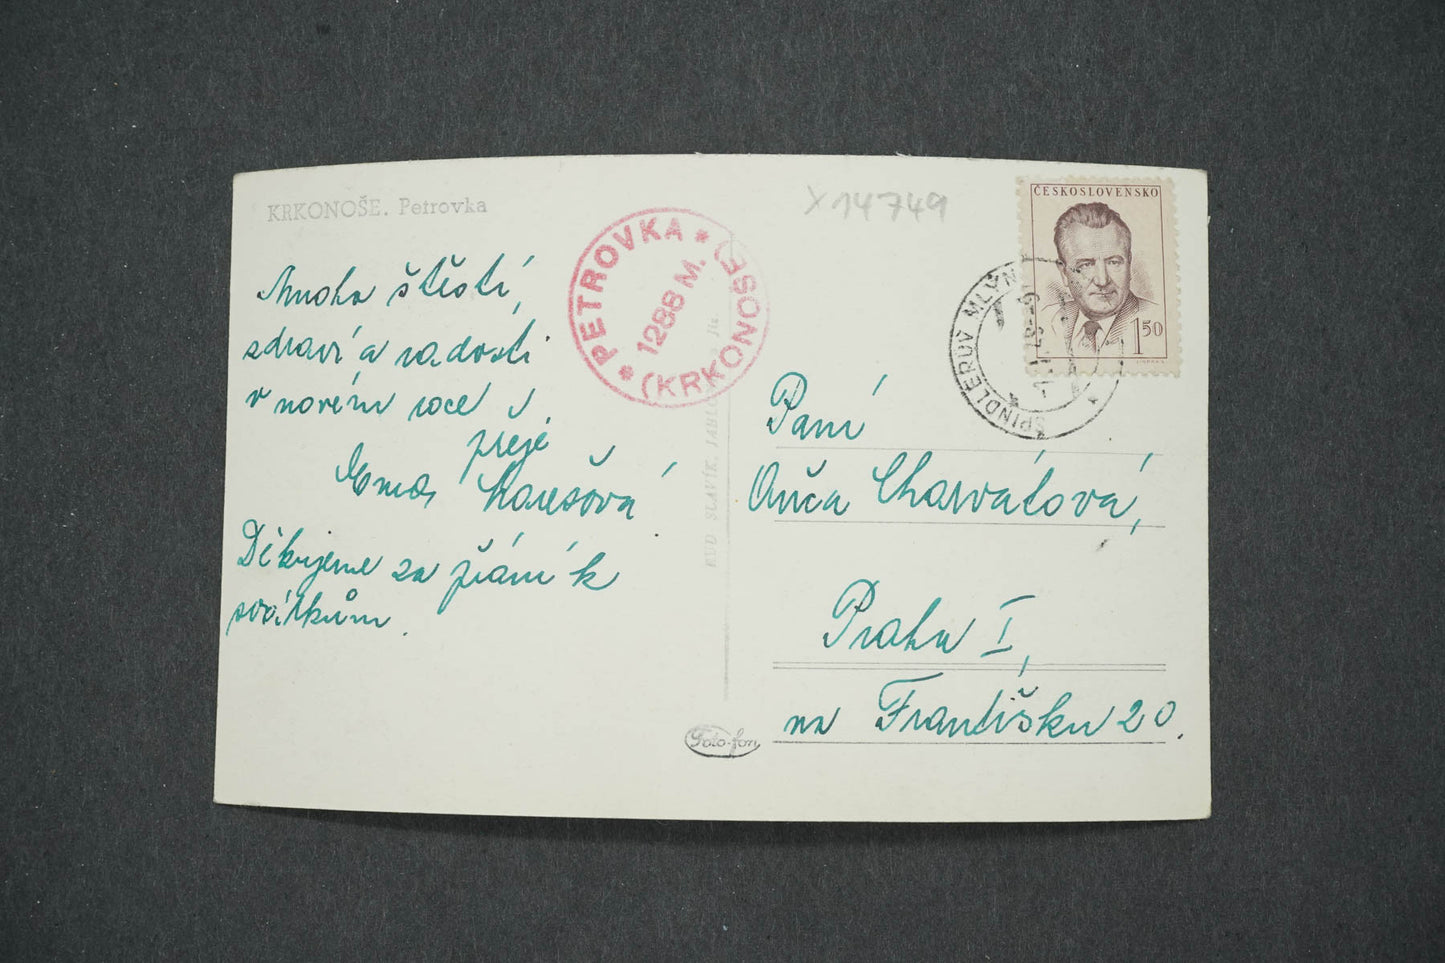 KRKONOŠE. Petrovka
X14749
ČESKOSLOVENSKO
1 50
* PETROVKA *
1288 M.
(KRKONOŠE)
ŠPINDLERŮV MLÝN
Mnoho štěstí,
zdraví a radosti
v novém roce
přeje
Ema Marešová
Děkujeme za přání k
svátkům.
Paní
Anča Charvátová,
Praha I,
na Františku 20.
Foto-fon